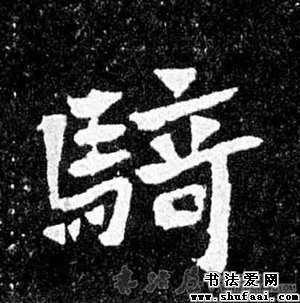 騎
书法爱网
www.shufaai.com